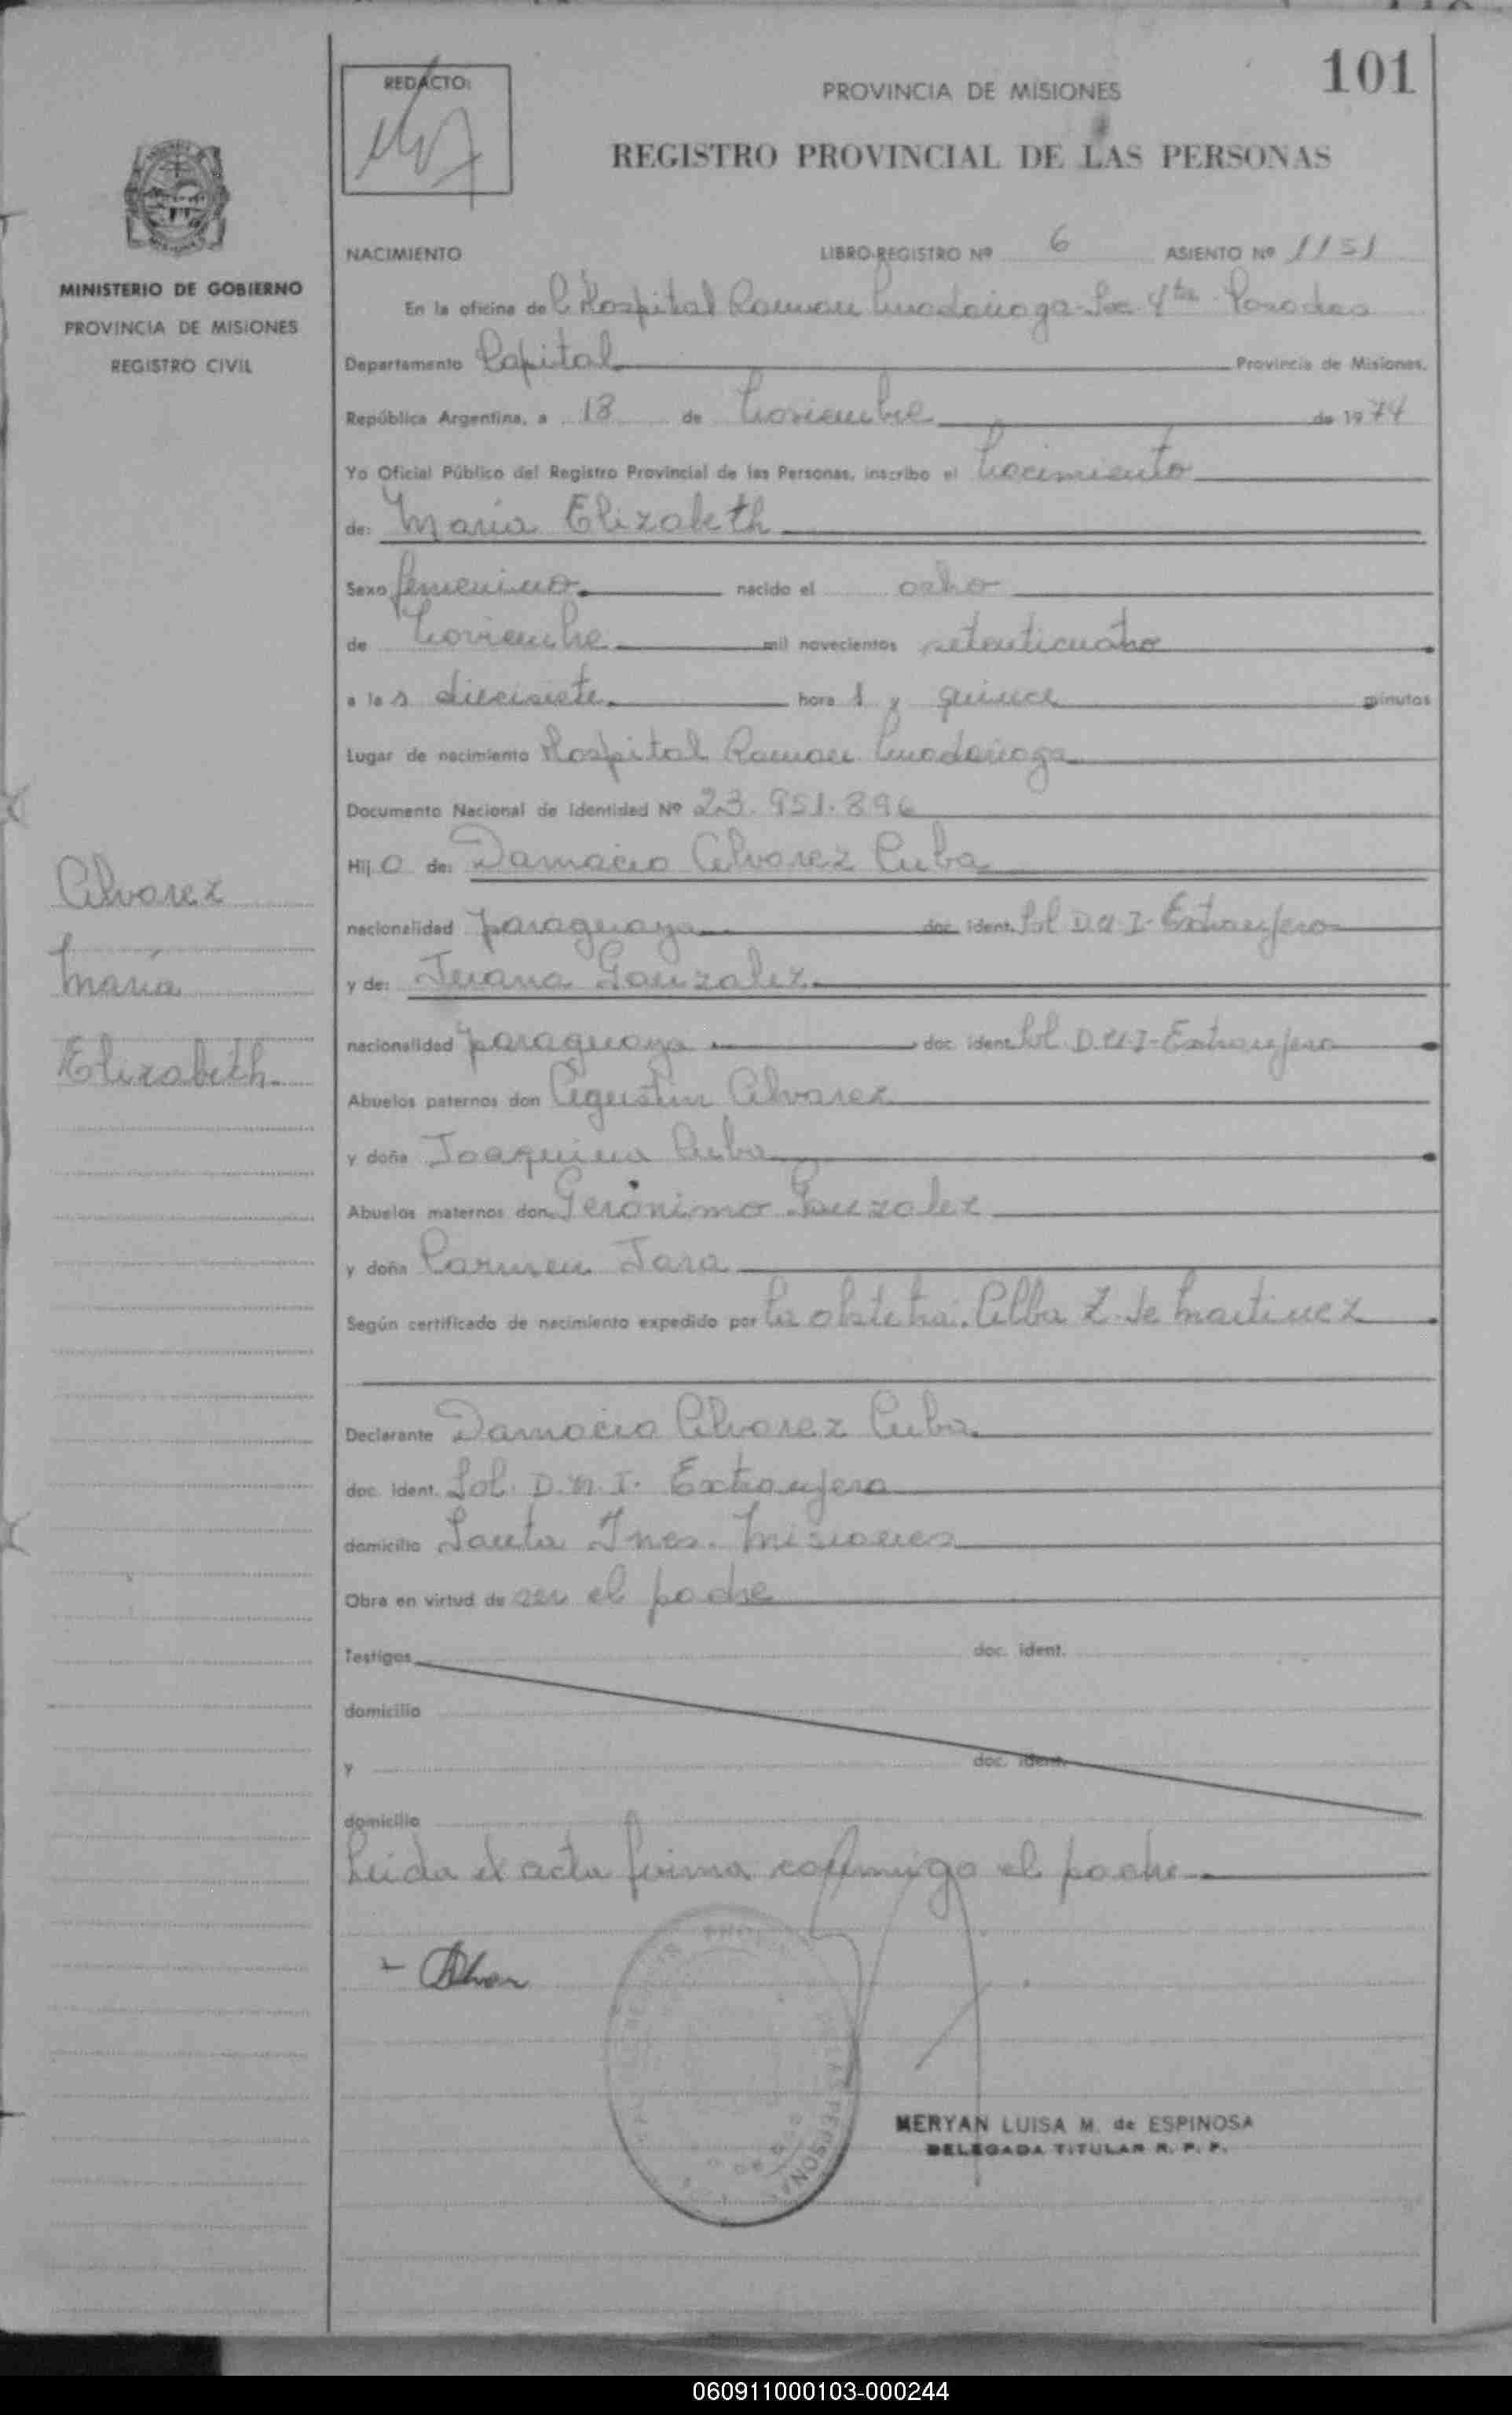 101
REDACTO:
PROVINCIA DE MISIONES
REGISTRO PROVINCIAL DE LAS PERSONAS
MINISTERIO DE GOBIERNO
PROVINCIA DE MISIONES
REGISTRO CIVIL
NACIMIENTO LIBRO-REGISTRO Nº 6 ASIENTO Nº 1151
En la oficina del Hospital Ramon Madariaga - Sec 4ta Posadas
Departamento Capital Provincia de Misiones,
República Argentina, a 18 de Noviembre de 1974
Yo Oficial Público del Registro Provincial de las Personas, inscribo el Nacimiento
de: Maria Elizabeth
Sexo femenino nacido el ocho
de Noviembre mil novecientos setenticuatro
a las diecisiete hora s y quince minutos
Lugar de nacimiento Hospital Ramon Madariaga
Documento Nacional de Identidad Nº 23.951.896
Hij a de: Damacio Alvarez Cuba
nacionalidad paraguaya doc. ident. Sol D.N.I - Extranjero
y de: Juana Gonzalez
nacionalidad paraguaya doc. ident. Sol D.N.I - Extranjera
Abuelos paternos don Agustin Alvarez
y doña Joaquina Cuba
Abuelos maternos don Gerónimo Gonzalez
y doña Carmen Jara
Según certificado de nacimiento expedido por la obstetra: Alba Z. de Martinez
Declarante Damacio Alvarez Cuba
doc. ident. Sol. D.N.I. Extranjero
domicilio Santa Ines. Misiones
Obra en virtud de ser el padre
Testigos doc. ident.
domicilio
y doc. ident.
domicilio
Leida el acta firma conmigo el padre
Alvarez
Maria
Elizabeth
MERYAN LUISA M. de ESPINOSA
DELEGADA TITULAR R. P. P.
060911000103-000244